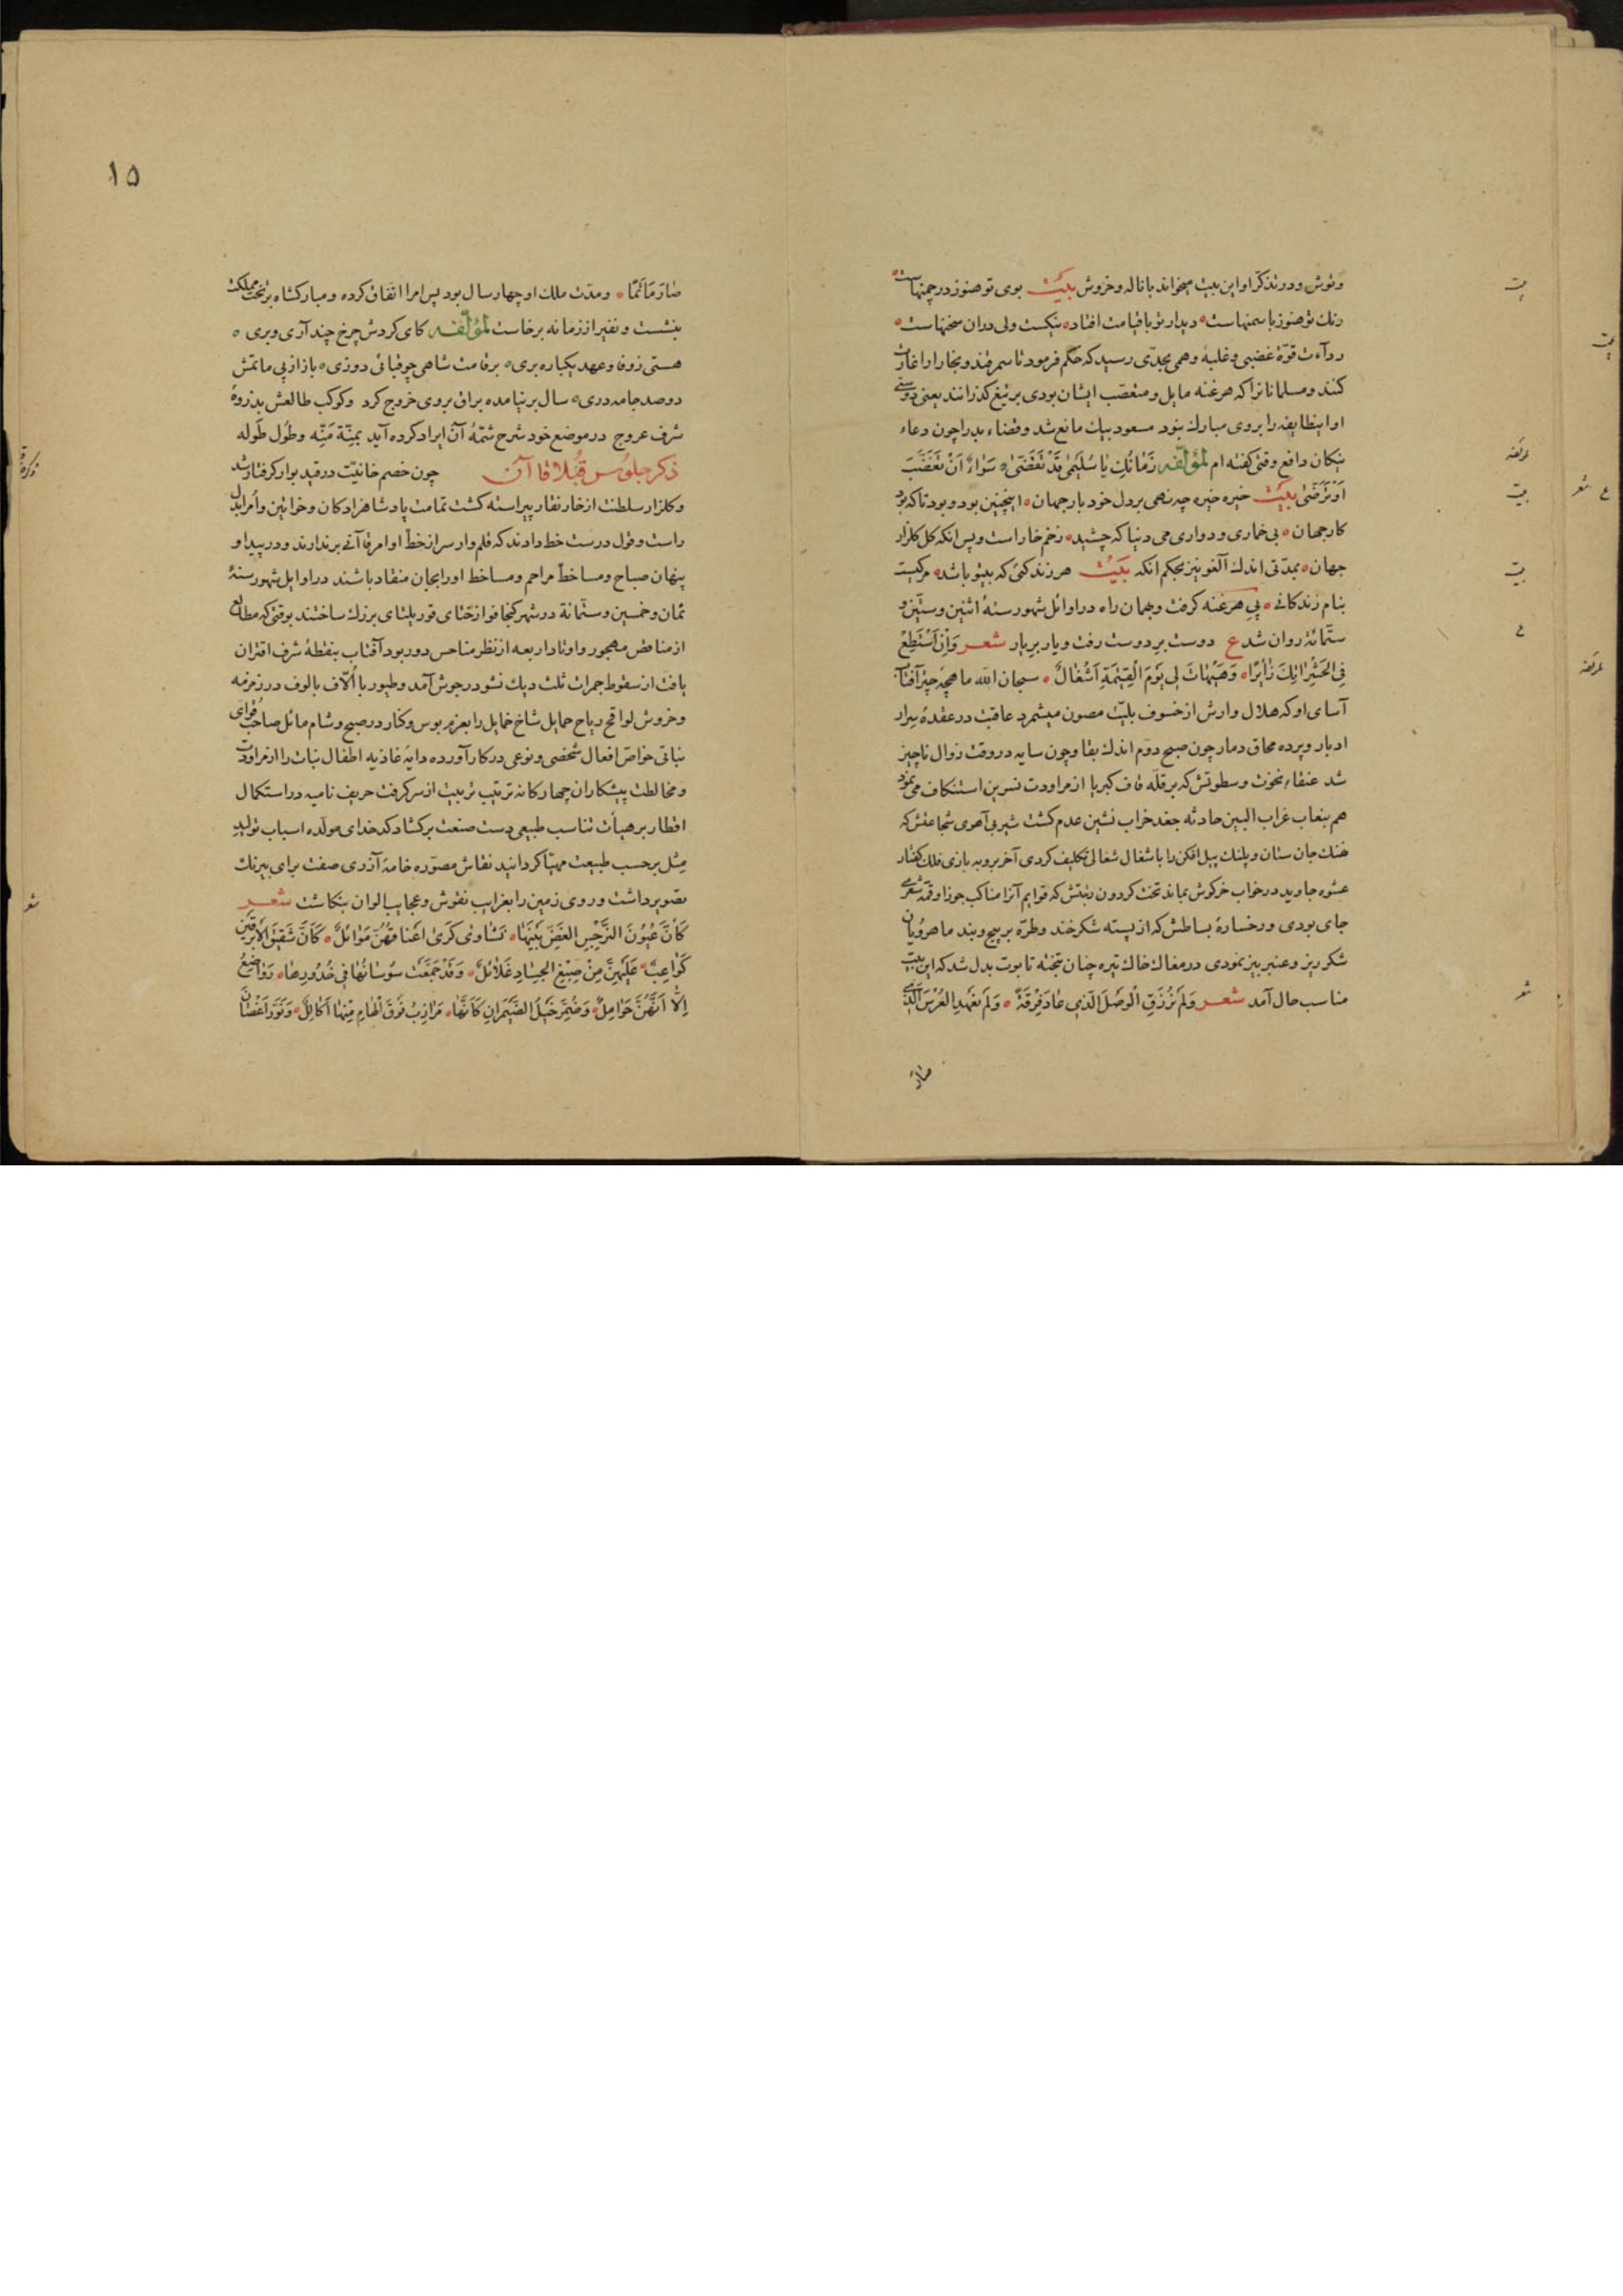 ونوش ودر تذکر او این بیت میخواند با ناله وخروش بیت بوی تو هنوز در چمنهاست
رنك تو هنوز با سمنهاست دیدار تو با قیامت افتاد نیکست ولی دران سخنهاست
ردآءت قوّة غضبی وغلبهٔ وهمی بحدّی رسید که حکم فرمود تا سمرقند وبخارا را غارت
کنند ومسلمانانرا که هرغنه مایل ومتعصب ایشان بودی بر تیغ گذرانند یعنی دوستی
او اینطایفه را بروی مبارك نبود مسعود بیك مانع شد وقضاء بد را چون دعاء
نیکان دافع وقتی گفته ام لمؤلّفه زمانك یا سلیمی قد تقضّی سواء ان تغضّب
او ترضی بیت خیره خیره چه نهی بر دل خود بار جهان اینچنین بود وبود تا که بود
کار جهان بی خماری ودواری می دنیا که چشید زخم خار است وپس آنکه کل کلزار
جهان بمدّتی اندك آلغو نیز بحکم انکه بیت هر زندکئی که بیتو باشد مرکیست
بنام زندکانی پی هرغنه کرفت وبهمان راه در اوائل شهور سنهٔ اثنین وستین و
ستّمائة روان شد ع دوست بر دوست رفت ویار بر یار شعر وان استطع
فی الحشر اتیك زائرا وهیهات لی یوم القیمة اشغال سبحان الله ماهچهٔ چتر آفتاب
آسای او که هلال وارش از خسوف بلیّت مصون میشمرد عاقبت در عقدهٔ سرار
ادبار وپرده محاق دمار چون صبح دوم اندك بقا وچون سایه در وقت زوال ناچیز
شد عنقاء نخوت وسطوتش که بر قلّه قاف کبریا از مراودت نسرین استنکاف می نمود
هم بنعاب غراب البین حادثه جغد خراب نشین عدم کشت شیر بی آهوی شجاعتش که
هنك جان ستان وپلنك پیل افکن را باشغال شغالی تکلیف کردی آخر بروبه بازی فلك کفتار
عشوه جاوید در خواب خرکوش بماند تخت کردون رتبتش که قوایم آنرا مناکب جوزا وقمّه شعری
جای بودی ورخسارهٔ بساطش که از پسته شکر خند وطرّه بر پیچ وبند ماهرویان
شکر ریز وعنبر بیز نمودی در مغاك خاك تیره چنان بتخته تابوت بدل شد که این بیت
مناسب حال آمد شعر ولم نرزق الوصل الذی عاد فرقة ولم نعهد العرس الذی
صار
۱۵
صار مأتما ومدّت ملك او چهار سال بود پس امرا اتفاق کرده ومبارکشاه بر تخت مملکت
بنشست ونفیر از زمانه برخاست لمؤلّفه کای کردش چرخ چند آری وبری
هستی زوفا وعهد یکباره بری بر قامت شاهی چو قبائی دوزی باز از پی ماتمش
دو صد جامه دری سال بر نیامده براق بروی خروج کرد وکوکب طالعش بذروهٔ
شرف عروج در موضع خود شرح شمّهٔ آن ایراد کرده آید بمنّة منّه وطول طوله
ذکر جلوس قبلا قاآن چون خصم خانیّت در قید بوار کرفتار شد
وکلزار سلطنت از خار نقار پیراسته کشت تمامت پادشاهزادکان وخواتین وامرا بدل
راست وقول درست خط دادند که قلم وار سر از خطّ اوامر قاآنی برندارند ودر پیدا و
پنهان صباح ومسا خطّ مراحم ومساخط اورا بجان منقاد باشند در اوایل شهور سنهٔ
ثمان وخمسین وستّمائة در شهر کنجافو از ختای قوریلتای بزرك ساختند بوقتی که مطالع
از مناقض مهجور واوتاد اربعه از نظر مناحس دور بود آفتاب بنقطهٔ شرف اقتران
یافت از سقوط جمرات ثلث دیك نشو در جوش آمد وطیور با الّاف بالوف در زمزمه
وخروش لواقح ریاح حمایل شاخ خمایل را بعزم بوس وکنار در صبح وشام مائل صاحب قوای
نباتی خواصّ افعال شخصی ونوعی در کار آورده دایهٔ غاذیه اطفال نبات را از مراودت
ومخالطت پیشکاران چهارکانه ترتیب تربیت از سر کرفت حریف نامیه در استکمال
اقطار بر هیأت تناسب طبیعی دست صنعت برکشاد کدخدای مولّده اسباب تولید
مثل بر حسب طبیعت مهیّا کردانید نقاش مصوّره خامهٔ آذری صفت برای بیرنك
تصویر برداشت وروی زمین را بغرایب نقوش وعجایب الوان بنکاشت شعر
کانّ عیون النرجس الغضّ بینها نشاوی کری اعناقهنّ موائل کانّ شقیق الابرقین
کواعب علیهنّ من صبغ الجساد غلائل وقد جمعت سوسانها فی خدودها رواضع
الّا انّهنّ حوامل وضیمر خیل الضیمران کانها مرازب فوق الهام منها اکالیل ونوّر اغصان